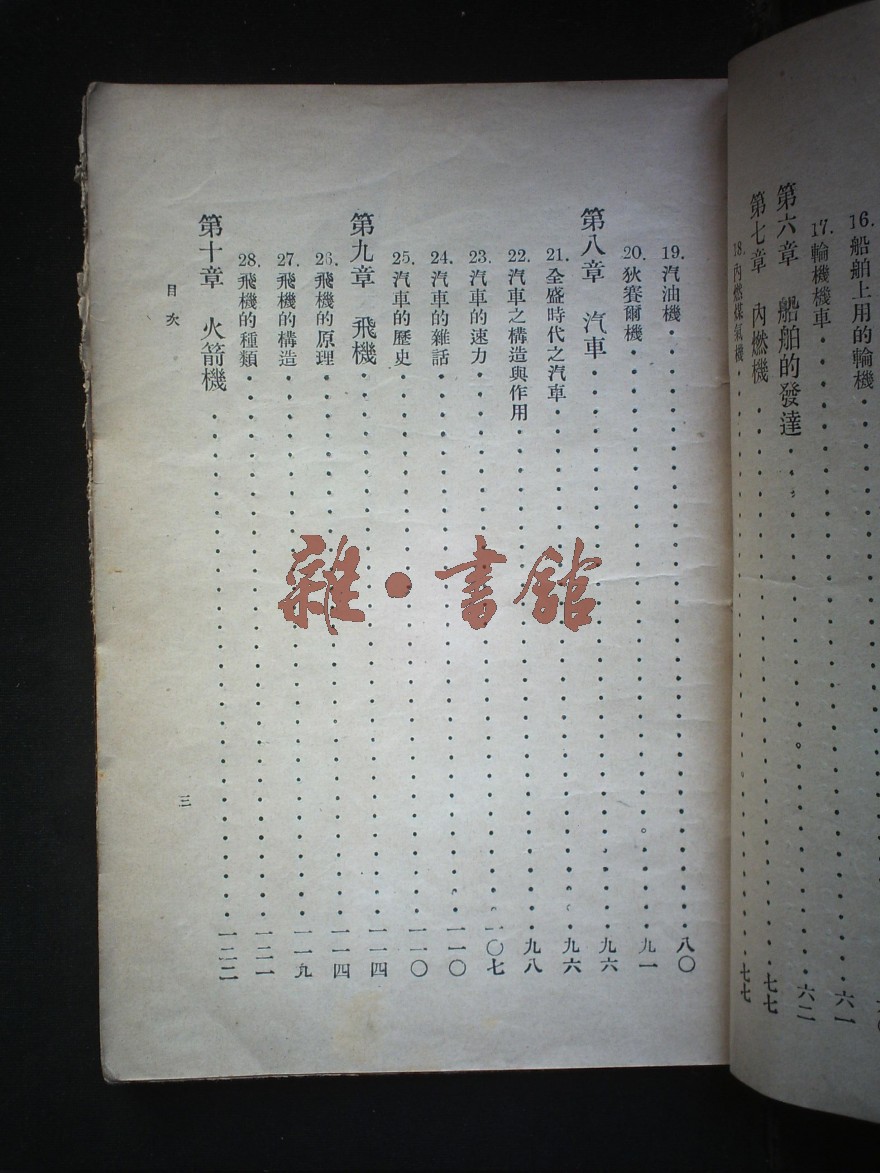 16. 船舶上用的輪機
17. 輪機機車 六一
第六章 船舶的發達 六二
第七章 內燃機 七七
18. 內燃煤氣機 七七
19. 汽油機 八〇
20. 狄賽爾機 九一
第八章 汽車 九六
21. 全盛時代之汽車 九六
22. 汽車之構造與作用 九八
23. 汽車的速力 一〇七
24. 汽車的雜話 一一〇
25. 汽車的歷史 一一〇
第九章 飛機 一一四
26. 飛機的原理 一一四
27. 飛機的構造 一一九
28. 飛機的種類 一二一
第十章 火箭機 一二二
目次
三
雜·書館